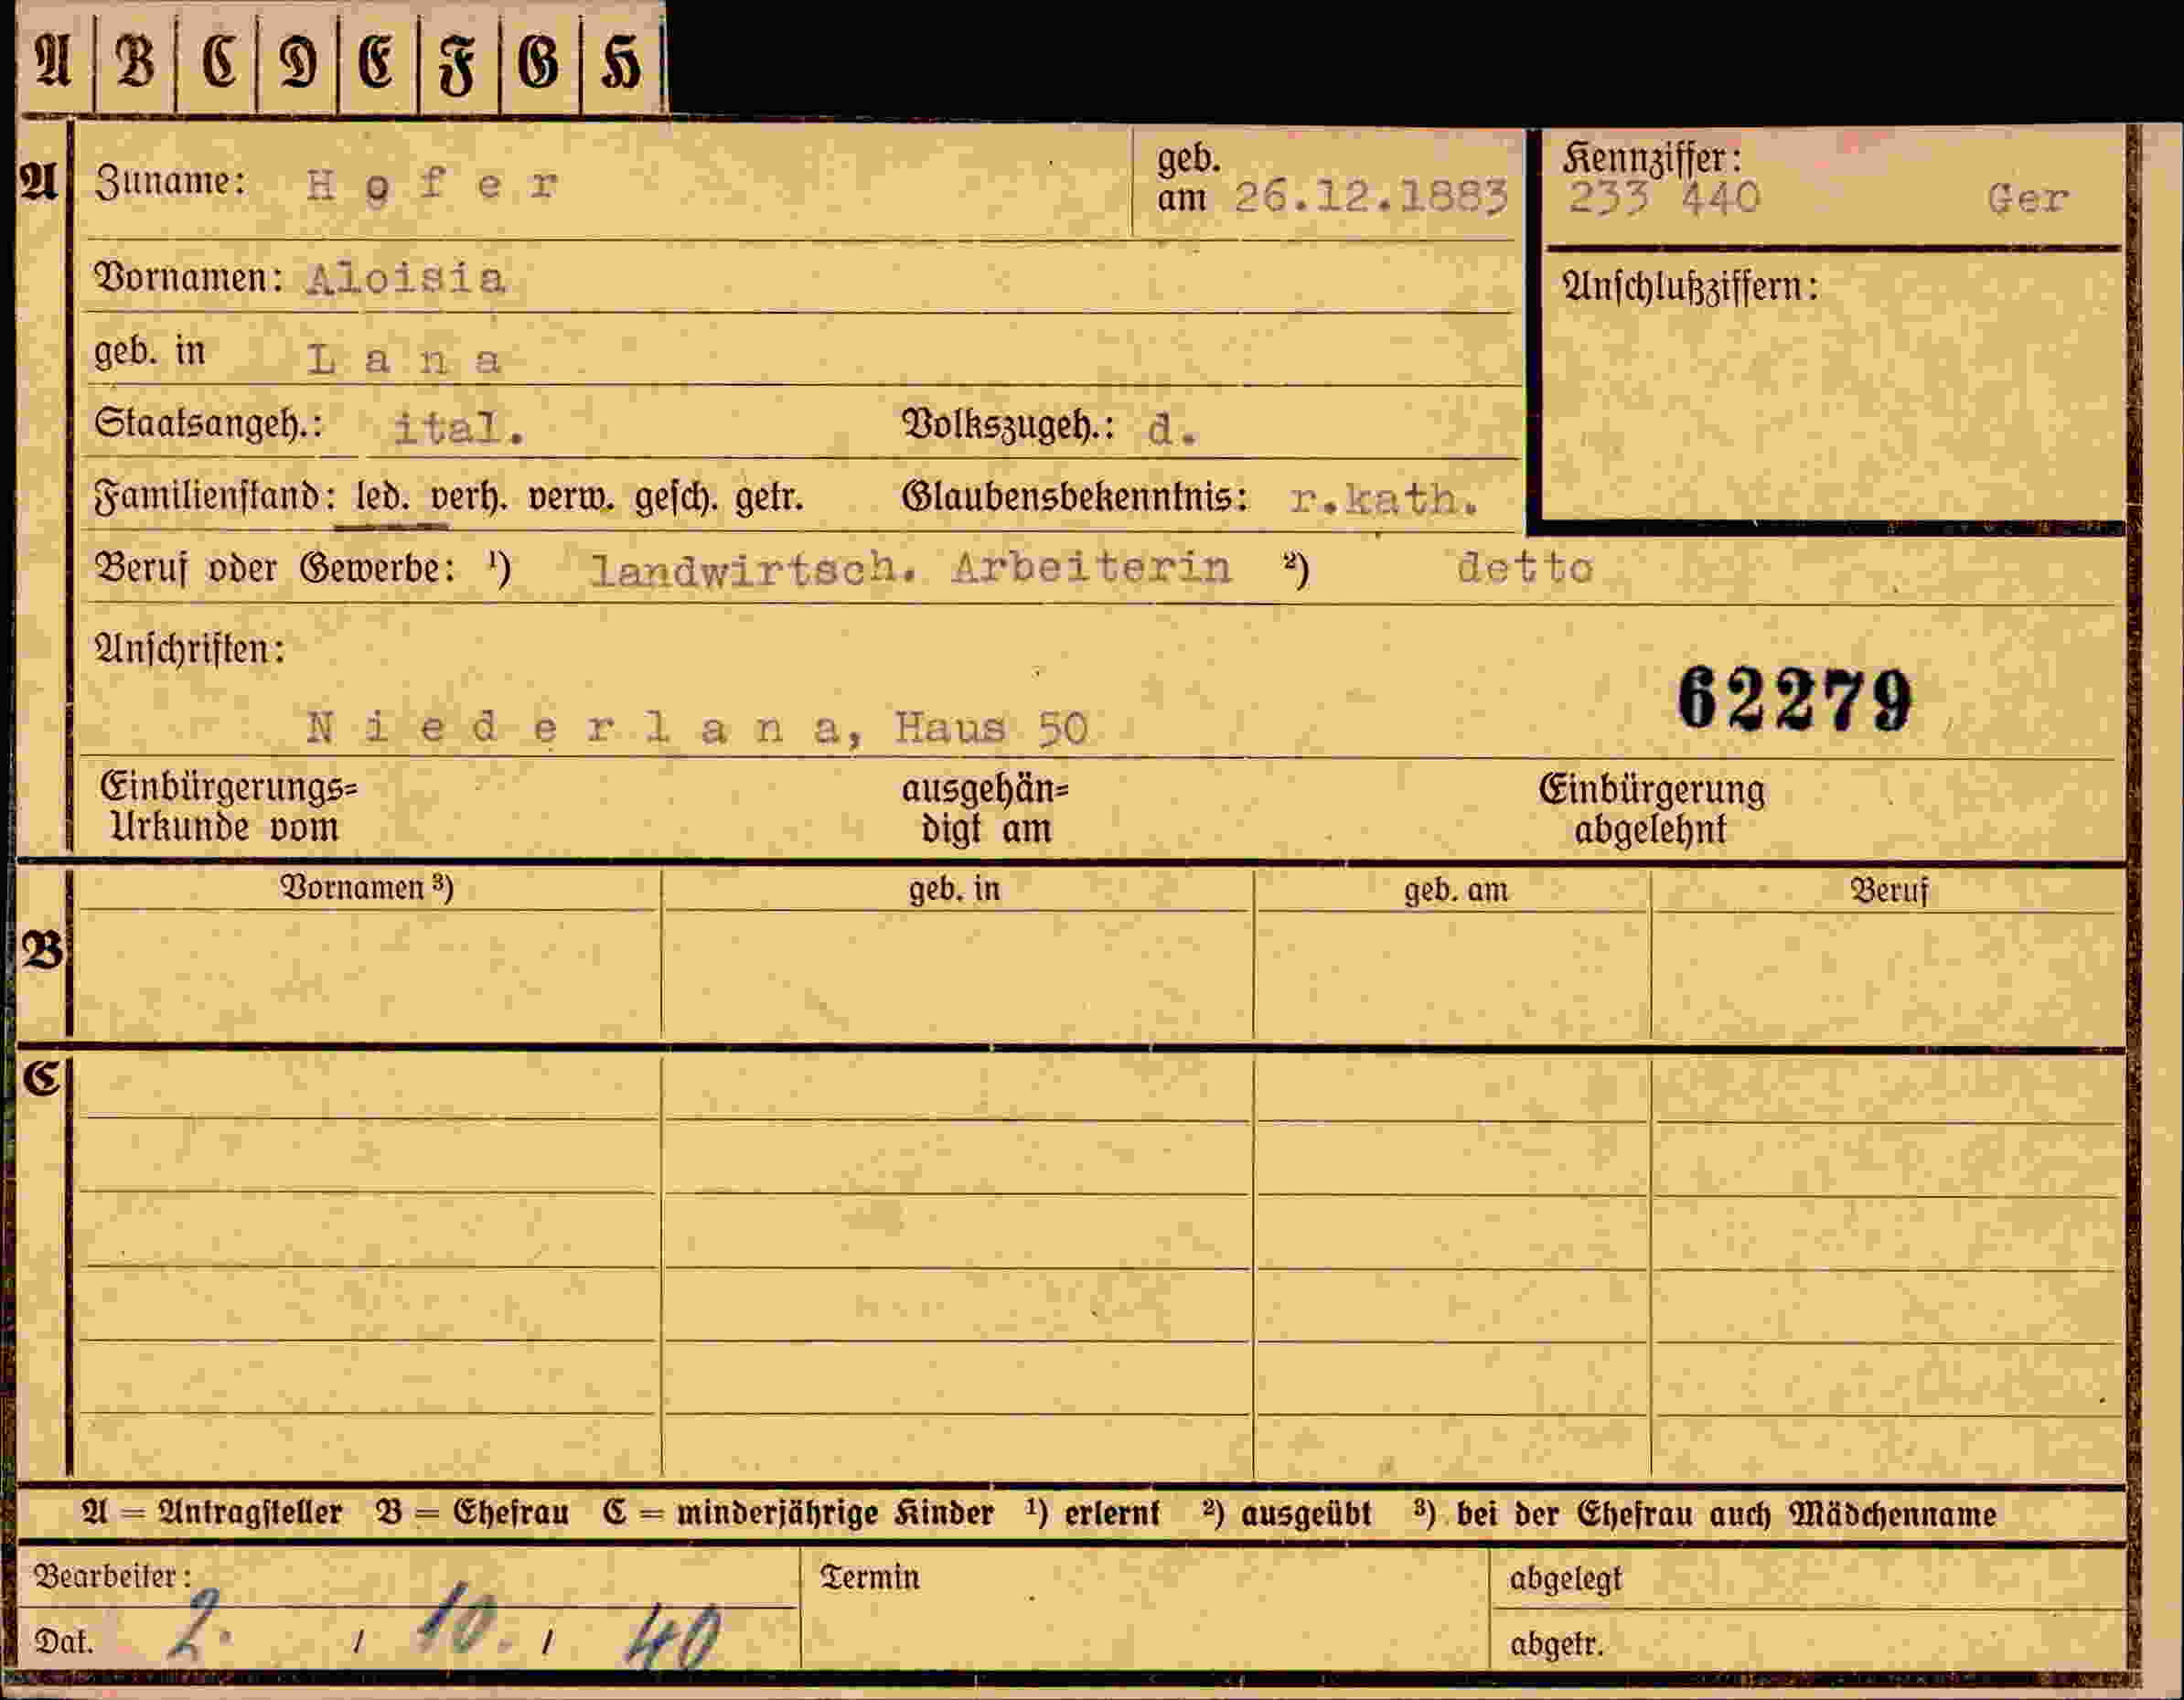 A B C D E F G H
A Zuname: Hofer geb. am 26.12.1883 Kennziffer: 233 440 Ger
Vornamen: Aloisia Anschlußziffern:
geb. in Lana
Staatsangeh.: ital. Volkszugeh.: d.
Familienstand: led. verh. verw. gesch. getr. Glaubensbekenntnis: r.kath.
Beruf oder Gewerbe: ¹) landwirtsch. Arbeiterin ²) detto
Anschriften:
62279
Niederlana, Haus 50
Einbürgerungs= ausgehän= Einbürgerung
Urkunde vom digt am abgelehnt
Vornamen ³) geb. in geb. am Beruf
B
C
A = Antragsteller B = Ehefrau C = minderjährige Kinder ¹) erlernt ²) ausgeübt ³) bei der Ehefrau auch Mädchenname
Bearbeiter: Termin abgelegt
Dat. 2. / 10. / 40 abgetr.